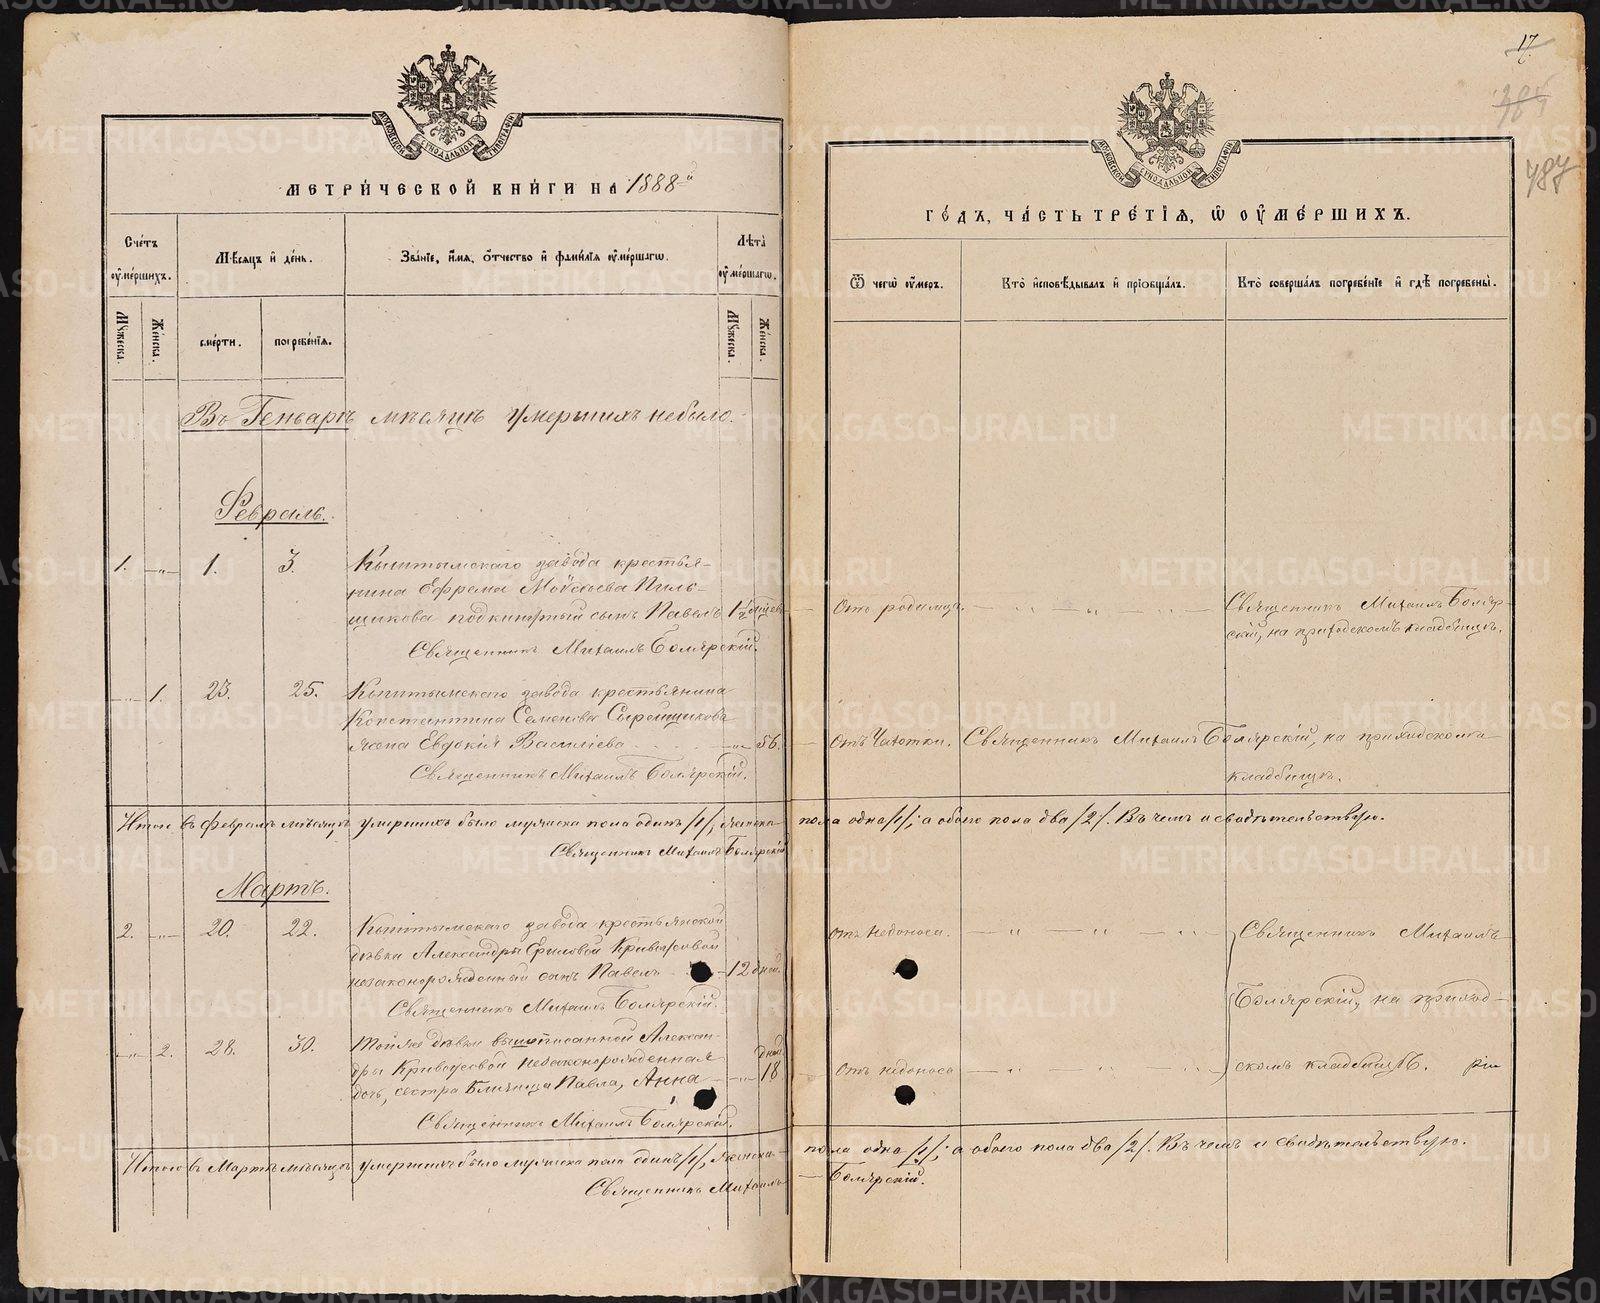 МОСКОВСКОЙ СѴНОДАЛЬНОЙ ТИПОГРАФІИ
МЕТРИ́ЧЕСКОЙ КНИ́ГИ НА 1888-й
Сче́тъ ᲂу҆ме́ршихъ.
Мѣ́сяцъ и҆ де́нь.
Зва́нїе, и҆́мѧ, ѻ҆́тчество и҆ фами́лїѧ ᲂу҆ме́ршагѡ.
Лѣ́та ᲂу҆ме́ршагѡ.
Мꙋ́жеска.
Же́нска.
сме́рти.
погребе́нїѧ.
Мꙋ́жеска.
Же́нска.
Въ Генварѣ мѣсяцѣ умершихъ небыло.
Февраль.
1. -„- 1. 3. Кыштымскаго завода крестья-
нина Ефрема Моѵсеева Пиль-
щикова подкинутый сынъ Павелъ 1½ мѣсяц
Священникъ Михаилъ Болярскій.
-„- 1. 23. 25. Кыштымскаго завода крестьянина
Константина Семенова Сырейщикова
жена Евдокія Василіева -„- 56.
Священникъ Михаилъ Болярскій.
Итого въ Февралѣ мѣсяцѣ умершихъ было мужеска пола одинъ /1/, женска
Священникъ Михаилъ Болярскій
Мартъ.
2. -„- 20. 22. Кыштымскаго завода крестьянской
дѣвки Александры Ефимовой Кривоусовой
незаконорожденный сынъ Павелъ 12 дней.
Священникъ Михаилъ Болярскій.
-„- 2. 28. 30. Той же дѣвки вышеписанной Алексан-
дры Кривоусовой незаконорожденная
дочь, сестра близница Павла, Анна -„- 18 дней
Священникъ Михаилъ Болярскій.
Итого въ Мартѣ мѣсяцѣ умершихъ было мужеска пола одинъ /1/, женска
Священникъ Михаилъ
17
787
МОСКОВСКОЙ СѴНОДАЛЬНОЙ ТИПОГРАФІИ
ГО́ДЪ, ЧА́СТЬ ТРЕ́ТЇѦ, Ѡ҆ ᲂУ҆МЕ́РШИХЪ.
Ѿ чегѡ̀ ᲂу҆́меръ.
Кто̀ и҆сповѣ́дывалъ и҆ прїѡбща́лъ.
Кто̀ соверша́лъ погребе́нїе и҆ гдѣ̀ погребены̀.
Отъ родимца. Священникъ Михаилъ Боляр-
скій, на приходскомъ кладбищѣ.
Отъ Чахотки. Священникъ Михаилъ Болярскій, на приходскомъ
кладбищѣ.
пола одна /1/; а обоего пола два /2/. Въ чемъ и свидѣтельствую.
Отъ недоноса. Священникъ Михаилъ
Болярскій, на приход-
Отъ недоноса скомъ кладбищѣ.
пола одна /1/; а обоего пола два /2/. Въ чемъ и свидѣтельствую.
Болярскій.
METRIKI.GASO-URAL.RU